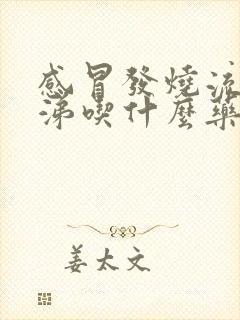 感冒發燒流
涕喫什麼藥
姜太文